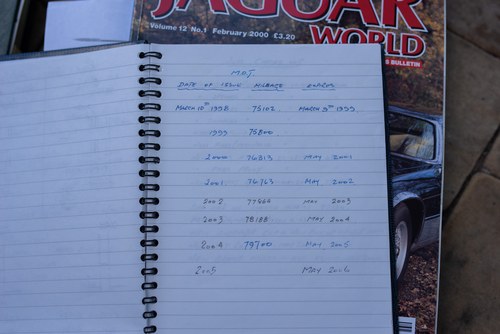 JAGUAR
Volume 12 No.1 February 2000 £3.20
WORLD
BULLETIN
M.O.T.
DATE OF ISSUE MILEAGE EXPIRES
MARCH 10TH 1998 75142 MARCH 9TH 1999
1999 75800
2000 MAY 2001
2001 76763 MAY 2002
2002 77464 MAY 2003
2003 78188 MAY 2004
2004 79700 MAY 2005
2005 MAY 2006